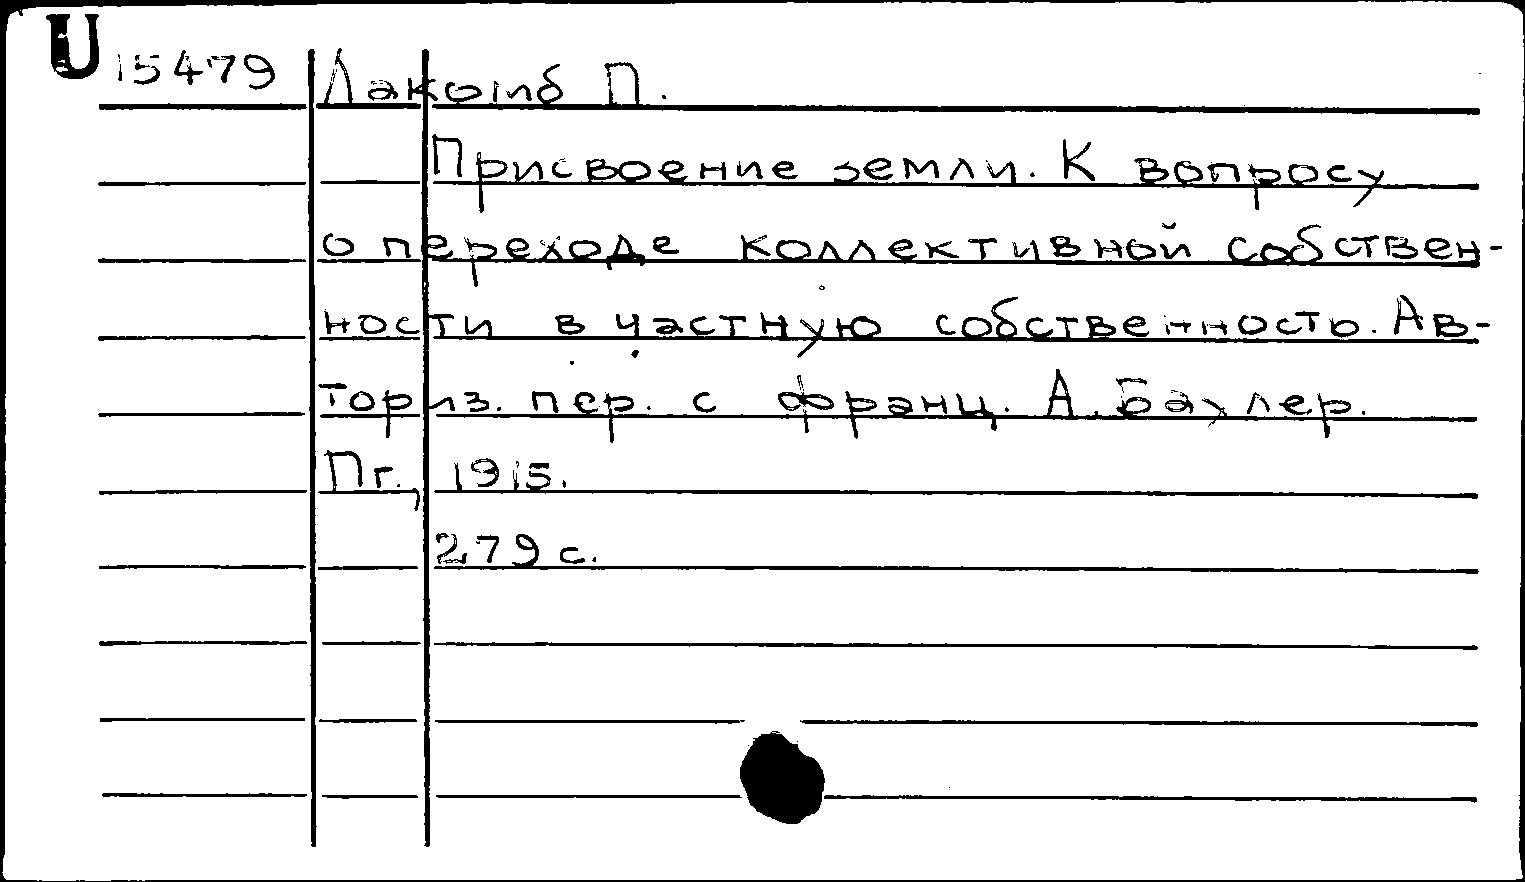 U 15479 Лакомб П.
Присвоение земли. К вопросу
о переходе коллективной собствен-
ности в частную собственность. Ав-
ториз. пер. с франц. А. Бахлер.
Пг., 1915.
279 с.